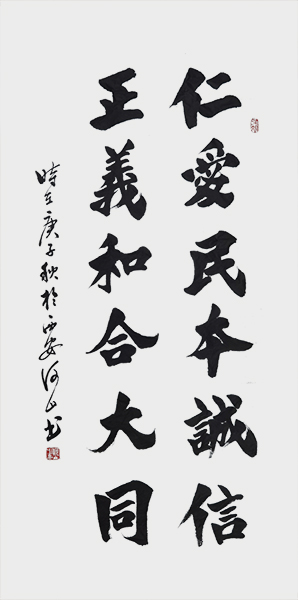 仁愛民本誠信
正義和合大同
時在庚子秋於西安河山書